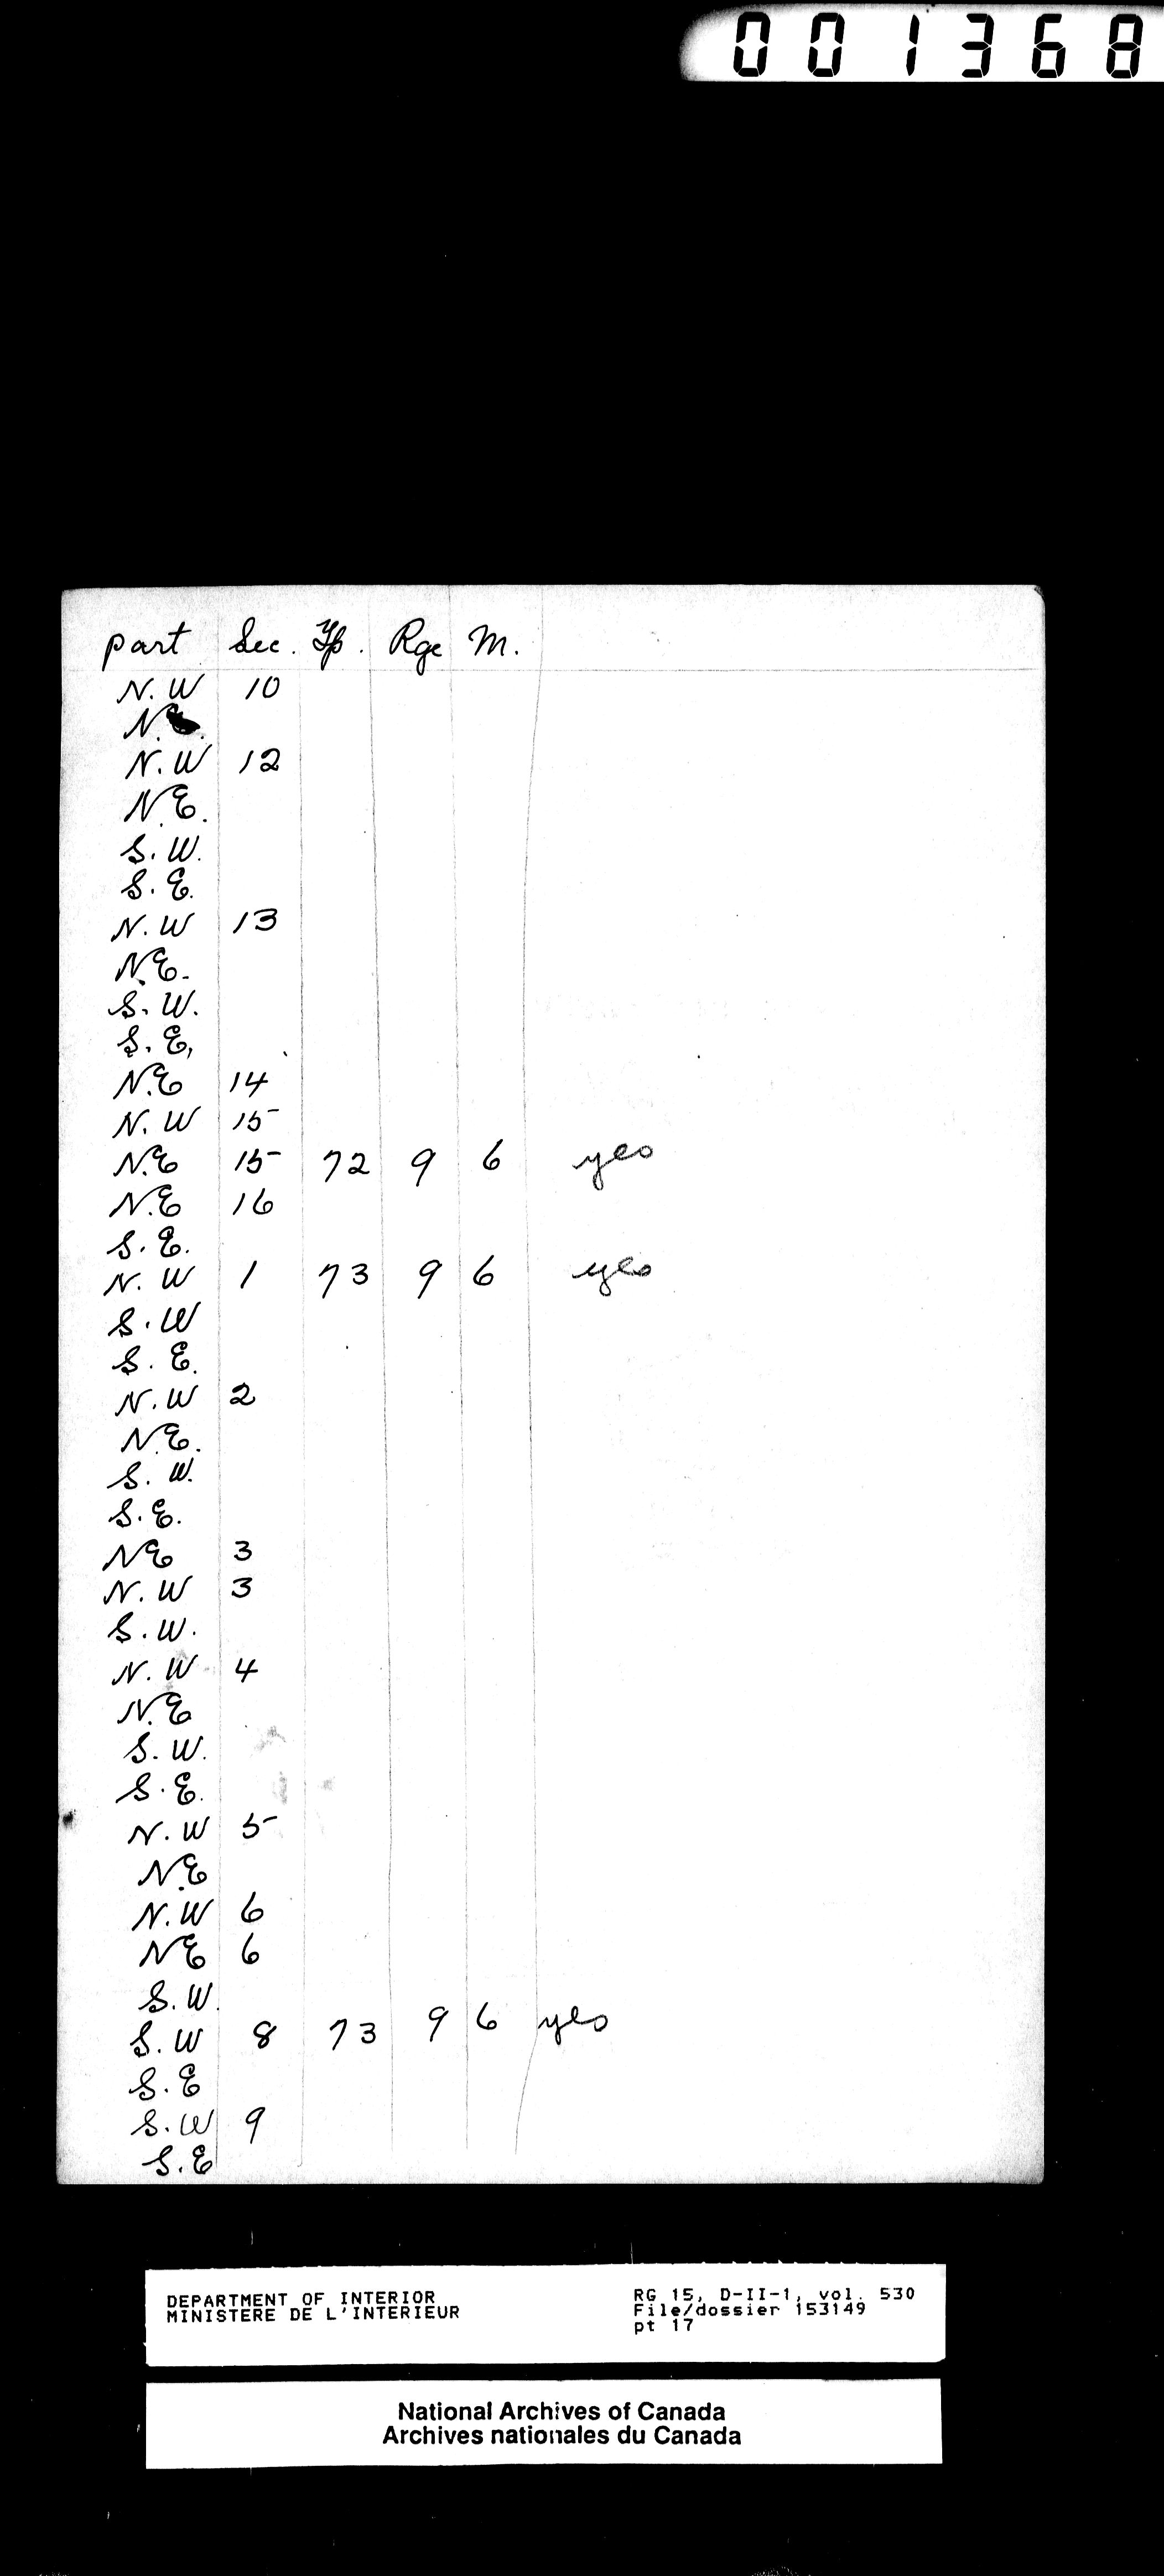 001368
part Sec. Tp. Rge M.
N.W 10
N.E.
N.W 12
N.E.
S.W.
S.E.
N.W 13
N.E.
S.W.
S.E.
N.E 14
N.W 15
N.E 15 72 9 6 yes
N.E 16
S.E.
N.W 1 73 9 6 yes
S.W
S.E.
N.W 2
N.E.
S.W.
S.E.
NE 3
N.W 3
S.W.
N.W 4
N.E
S.W.
S.E.
N.W 5
N.E
N.W 6
NE 6
S.W.
S.W 8 73 9 6 yes
S.E
S.W 9
S.E
DEPARTMENT OF INTERIOR
MINISTERE DE L'INTERIEUR
RG 15, D-II-1, vol. 530
File/dossier 153149
pt 17
National Archives of Canada
Archives nationales du Canada